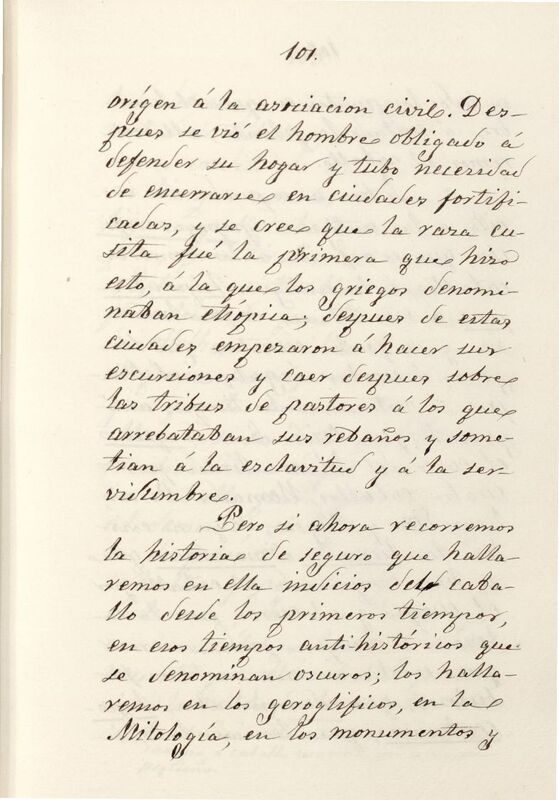 101.
orígen á la asociacion civil. Des-
pues se vió el hombre obligado á
defender su hogar y tubo necesidad
de encerrarse en ciudades fortifi-
cadas, y se cree que la raza cu-
sita fué la primera que hizo
esto, á la que los griegos denomi-
naban etiópica; despues de estas
ciudades empezaron á hacer sus
escursiones y caer despues sobre
las tribus de pastores á los que
arrebataban sus rebaños y some-
tian á la esclavitud y á la ser-
vidumbre.
Pero si ahora recorremos
la historia de seguro que halla-
remos en ella indicios del caba-
llo desde los primeros tiempos,
en esos tiempos anti-históricos que
se denominan oscuros; los halla-
remos en los geroglíficos, en la
Mitología, en los monumentos y